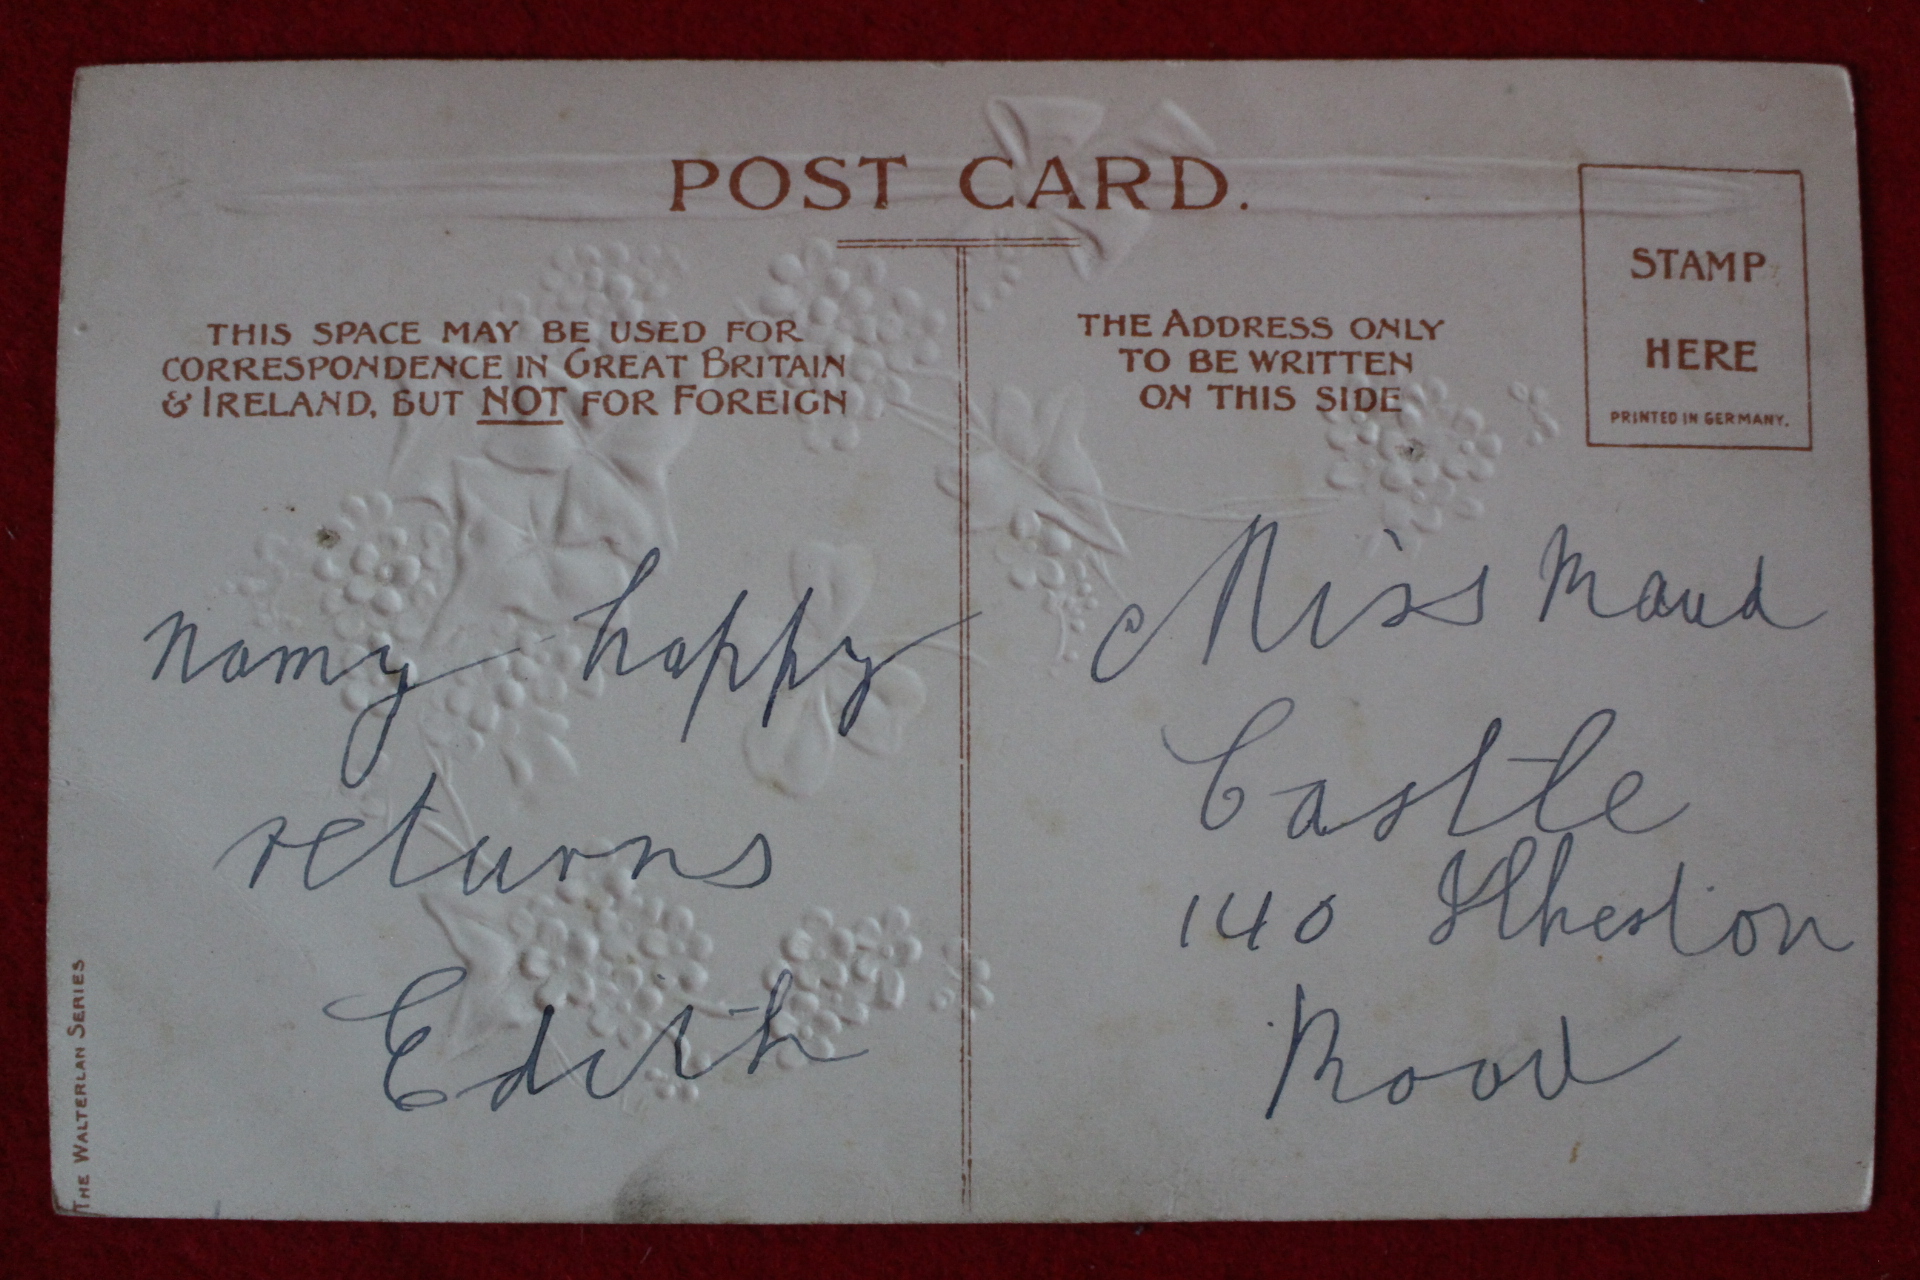 POST CARD.
THIS SPACE MAY BE USED FOR
CORRESPONDENCE IN GREAT BRITAIN
& IRELAND, BUT NOT FOR FOREIGN
THE ADDRESS ONLY
TO BE WRITTEN
ON THIS SIDE
STAMP
HERE
PRINTED IN GERMANY.
many happy
returns
Edith
Miss Maud
Castle
140 Ilkeston
Road
THE WALTERLAN SERIES